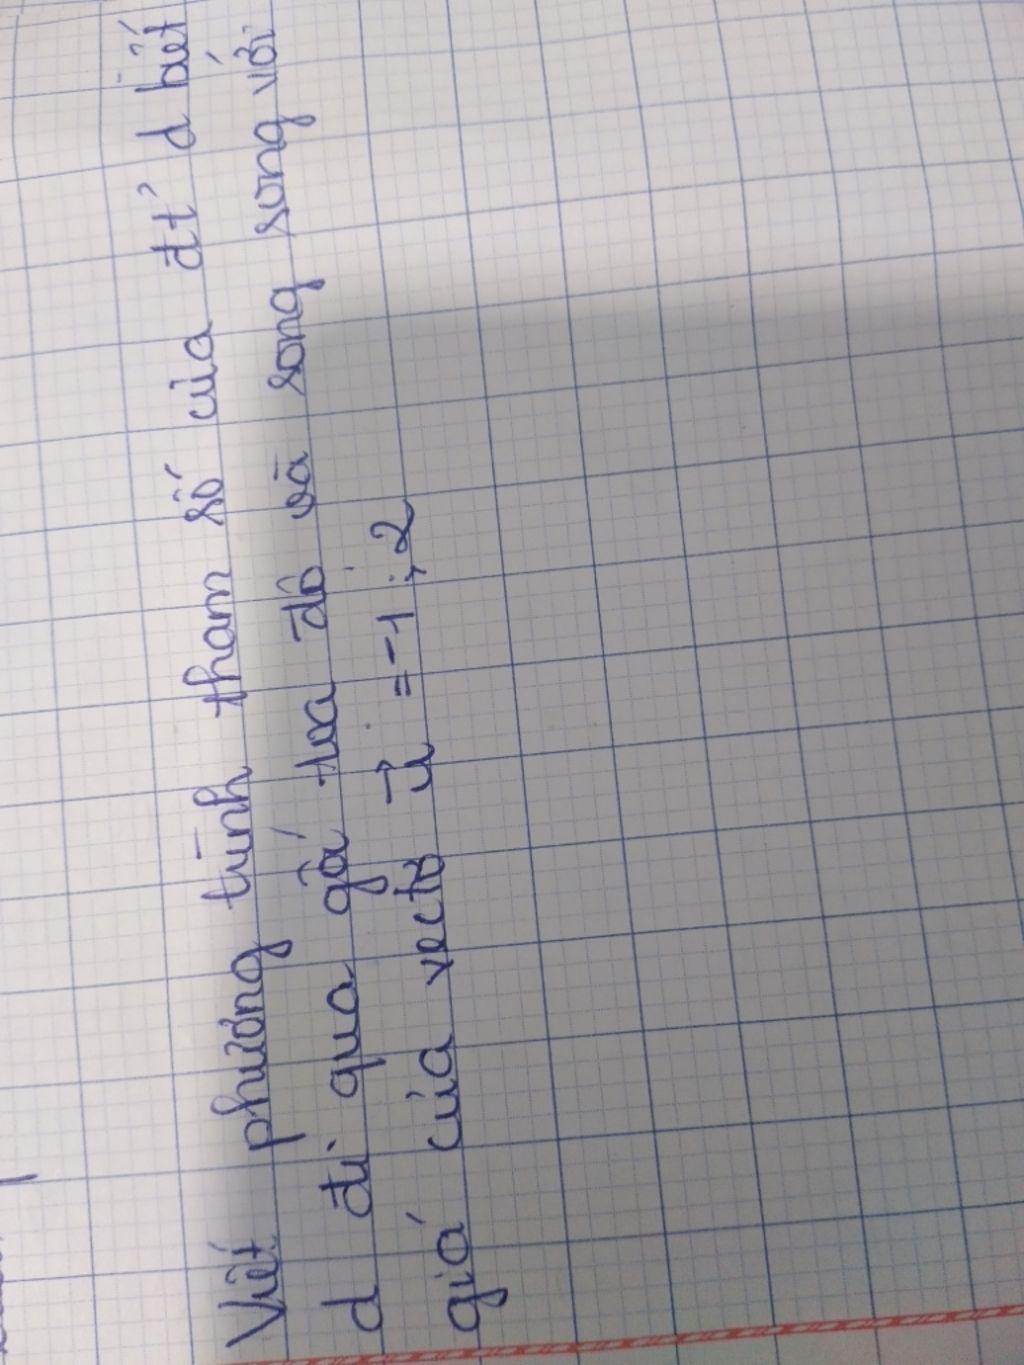 Viết phương trình tham số của đt' d biết
d đi qua gố tọa độ và song song với
giá của vectơ u⃗ = -1 ; 2